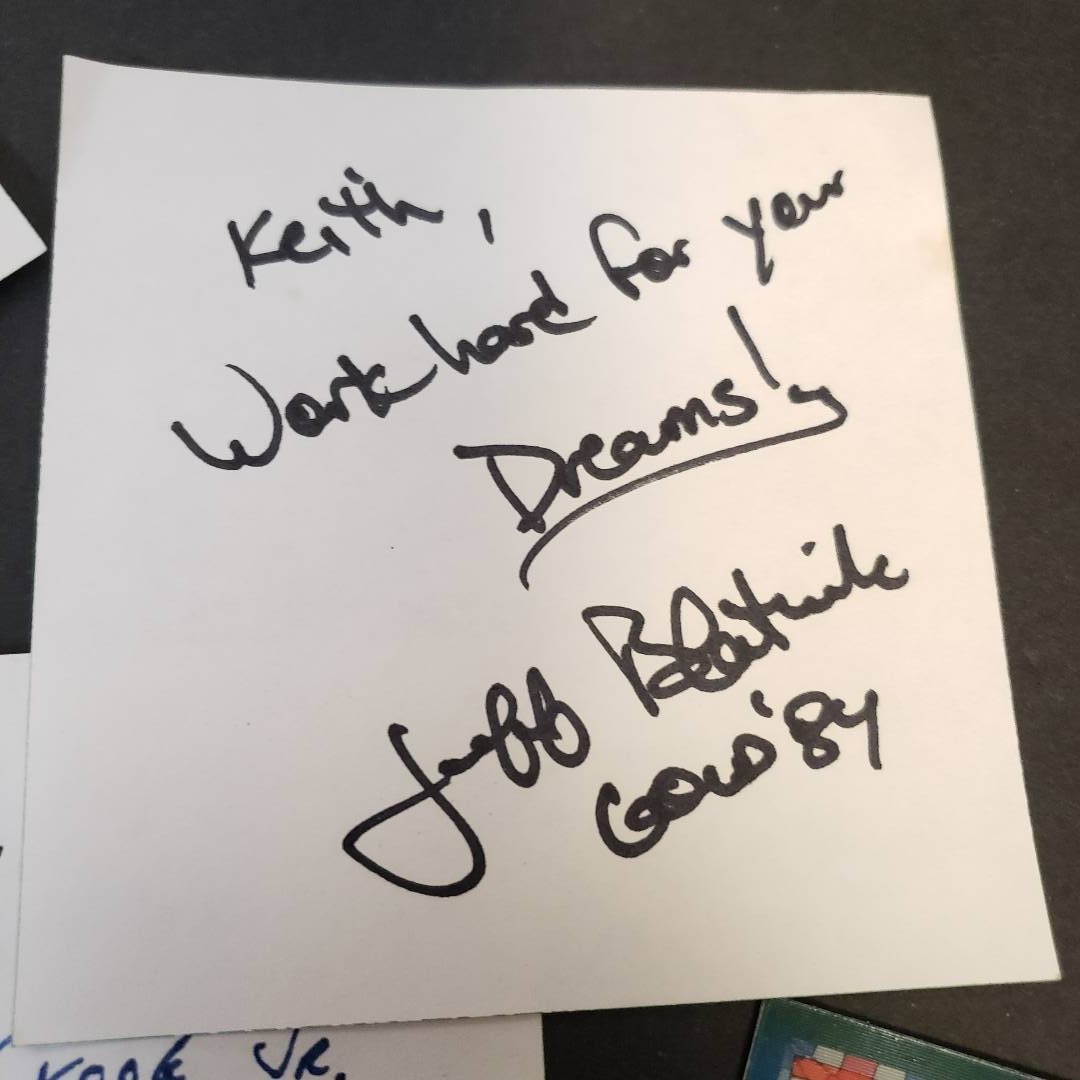 Keith,
Work hard for your
Dreams!
Jeff Blatnick
Gold '84
JR.